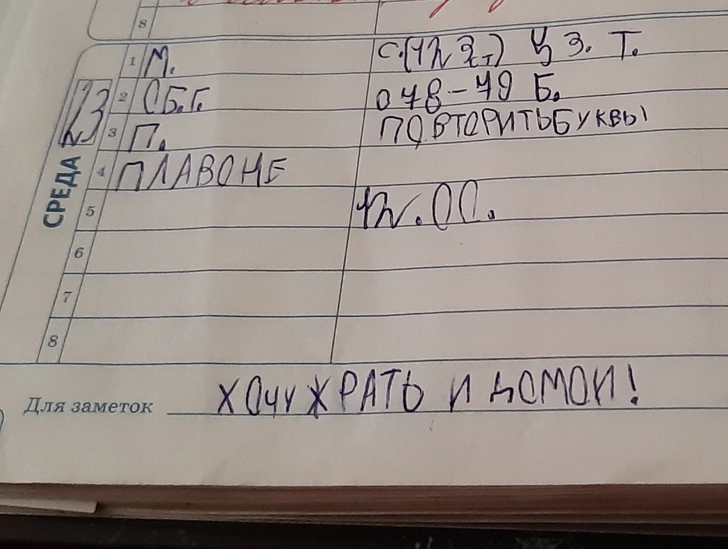 8
СРЕДА 23
1 М.
2 СБ.Г. 078-79 Б.
3 П. ПОВТОРИТЬБУКВЫ
4 ПЛАВОНЕ
5 12.00.
6
7
8
Для заметок ХОЧУ ЖРАТЬ И ДОМОЙ!